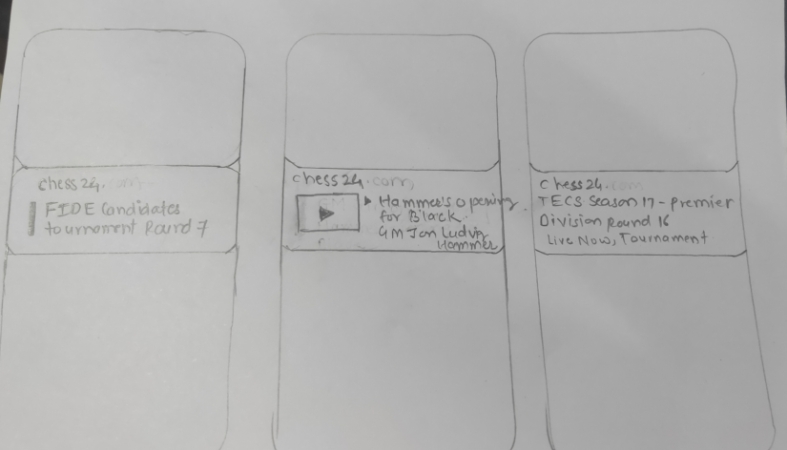 chess24.com
FIDE Candidates
tournament Round 7
chess24.com
Hammer's opening
for Black
GM Jon Ludvig
Hammer
chess24.com
TECS Season 17 - Premier
Division Round 16
Live Now, Tournament